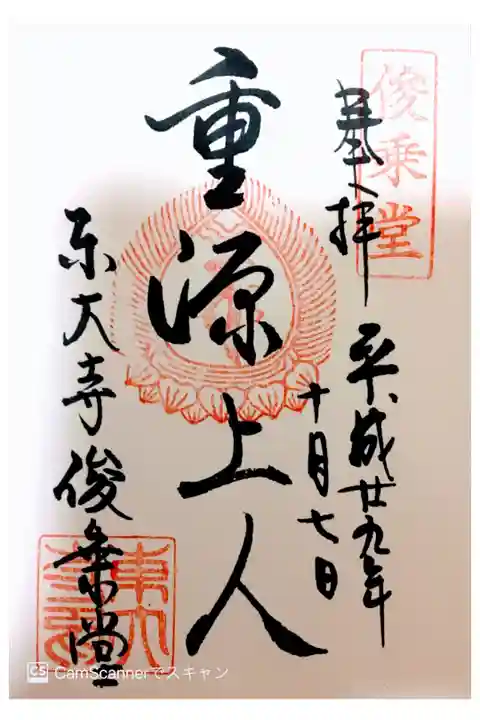 俊乗堂
奉拝
平成廿九年
十月七日
重源上人
东大寺俊乗堂
CS CamScannerでスキャン